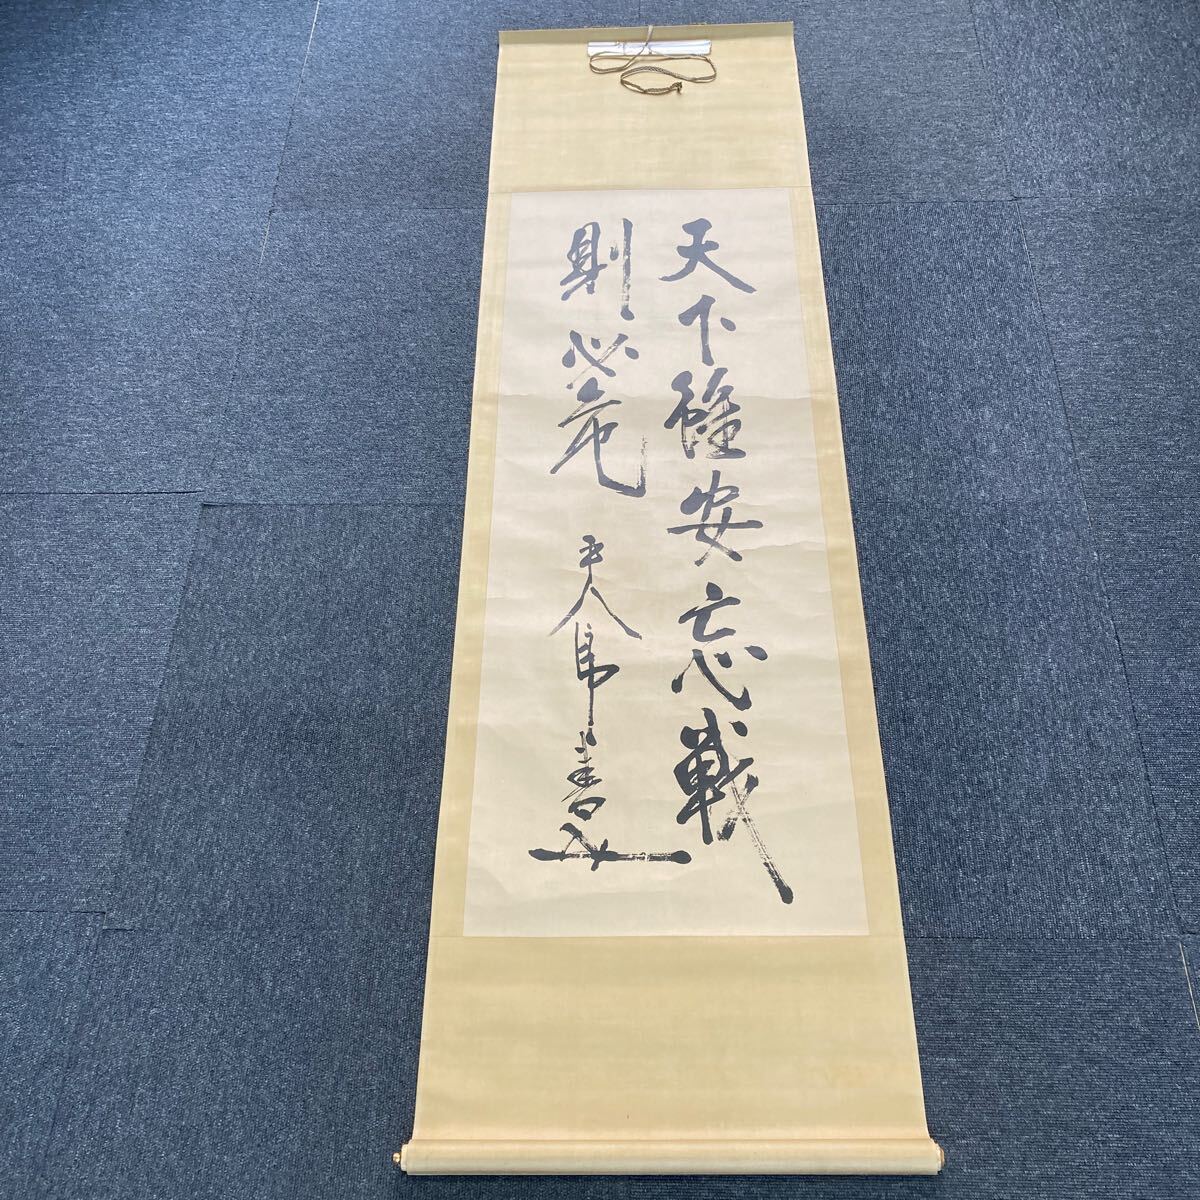 天下雖安忘戦
則必危 平八郎書